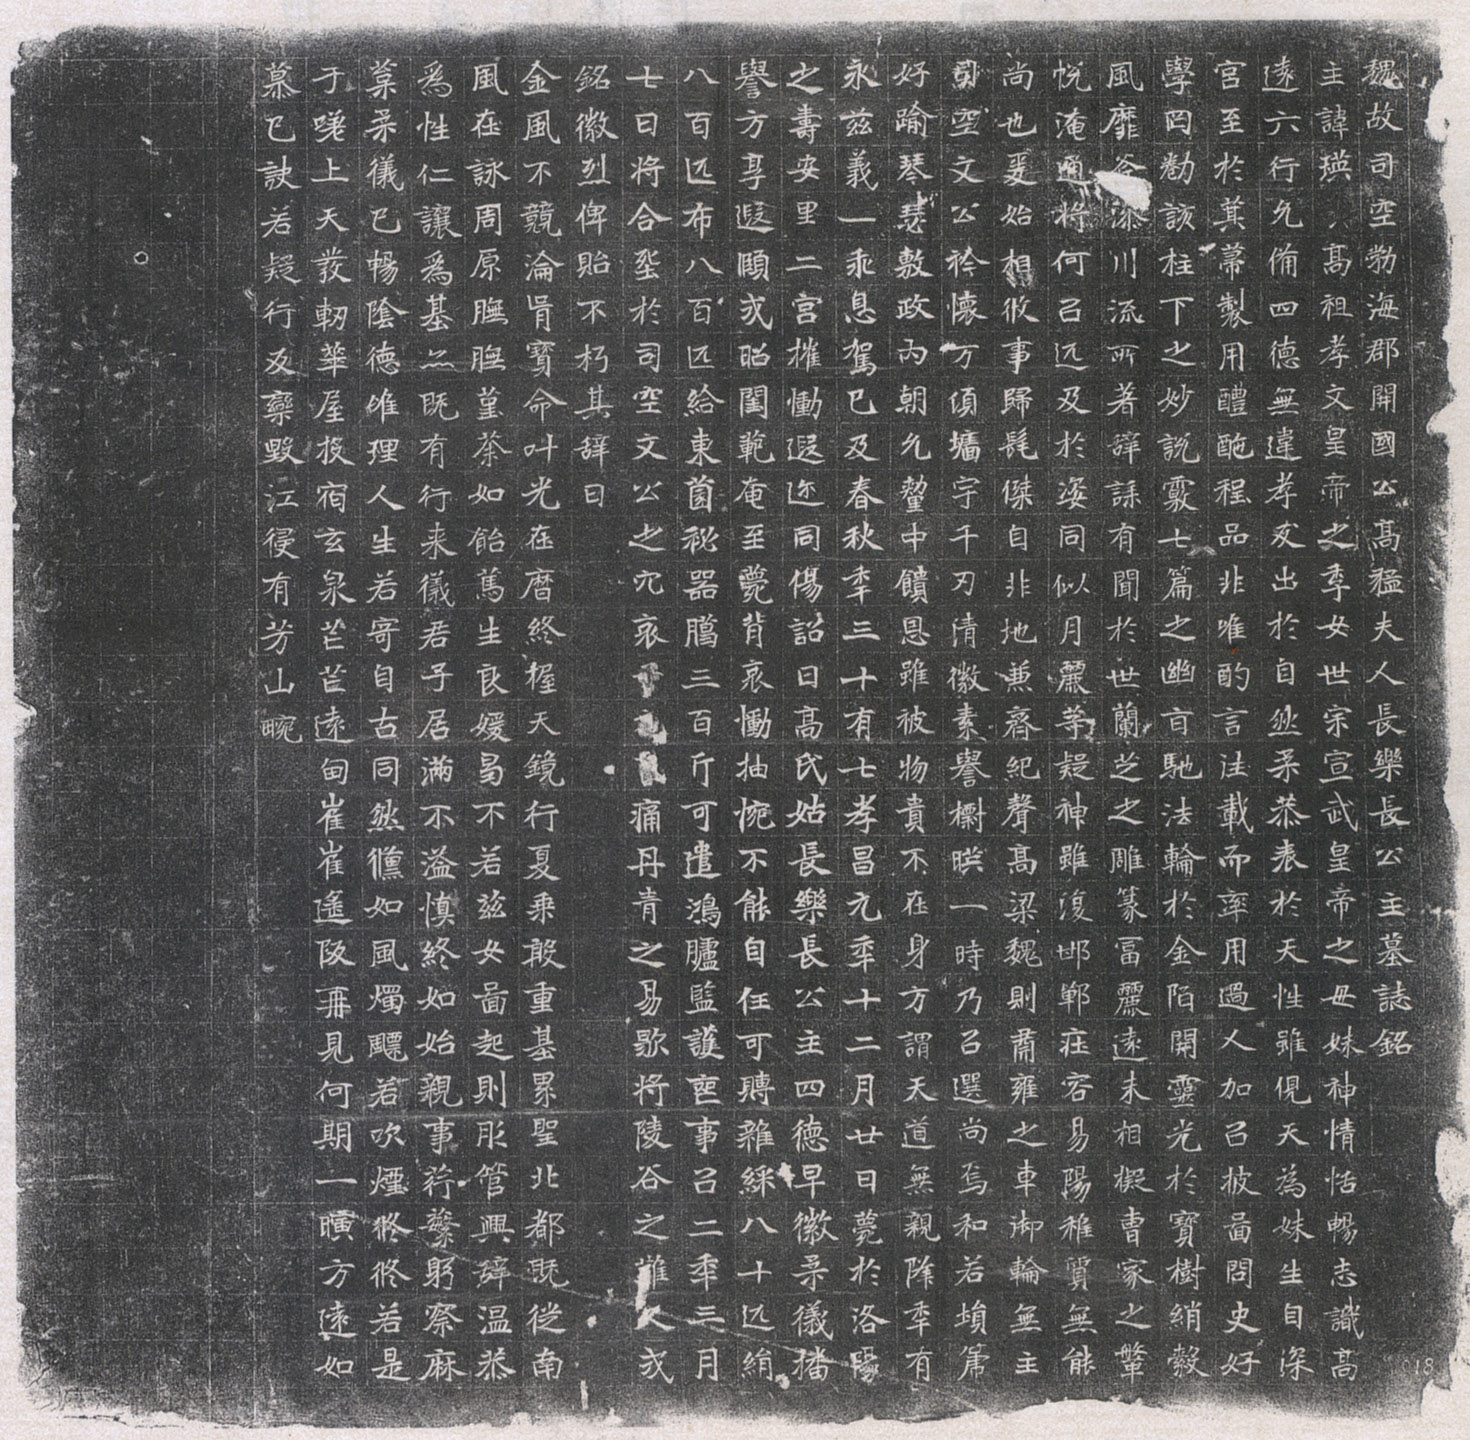 魏故司空勃海郡開國公高猛夫人長樂長公主墓誌銘
主諱瑛高祖孝文皇帝之季女世宗宣武皇帝之母妹神情恬暢志識高
遠六行允備四德無違孝友出於自然柔恭表於天性雖俔天為妹生自深
宮至於冪製用醴酏程品非唯酌言注載而率用過人加㠯披啚問史好
學罔勌該柱下之妙說覈七篇之幽旨馳法輪於金陌開靈光於寶樹綃縠
風靡斧藻川流所著辤誄有聞於世蘭芝之雕篆富麗遠未相擬曹家之鞶
帨淹通將何㠯匹及於姿同似月麗等疑神雖復邯鄲莊容易陽稚質無能
尚也爰始相攸事歸髦傑自非地兼齊紀聲高梁魏則肅雍之車御輪無主
司空文公衿懷万頃墻宇千刃清徽素譽櫛暎一時乃㠯選尚焉和若塤箎
好踰琴瑟敷政內朝允釐中饋恩雖被物貴不在身方謂天道無親降年有
永茲義一乖息駕已及春秋季三十有七孝昌元季十二月廿日薨於洛陽
之壽安里二宮摧慟遐迩同傷詔曰高氏姑長樂長公主四德早徽柔儀播
譽方享遐頤式昭閨範奄至薨背哀慟抽惋不能自任可賻雜綵八十匹絹
八百匹布八百匹給東薗秘器臈三百斤可遣鴻臚監護喪事㠯二季三月
七日將合塟於司空文公之穴哀痛丹青之易歇將陵谷之難久式
銘徽烈俾貽不朽其辤曰
金風不競淪胥寶命叶光在曆終握天鏡行夏乘殷重基累聖北都既從南
風在詠周原膴膴堇荼如飴篤生良媛曷不若茲女啚起則彤管興辤溫恭
為性仁讓為基亦既有行来儀君子居滿不溢慎終如始親事荇蘩躬察麻
葈柔儀已暢陰德唯理人生若寄自古同然儵如風燭飄若吹煙悠悠若是
于嗟上天發軔華屋投宿玄泉芒芒遠甸崔崔遙阪再見何期一曠方遠如
慕已訣若疑行反欒毀江侵有芳山畹